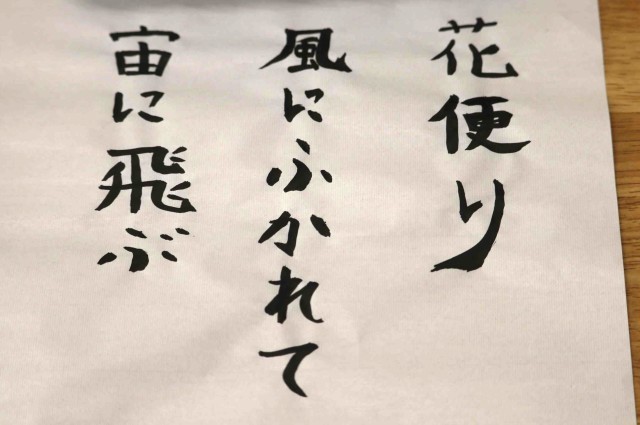 花便り
風にふかれて
宙に飛ぶ